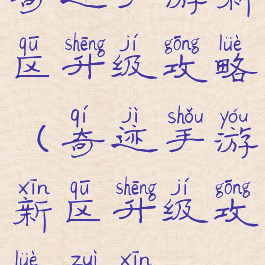 qū shēng jí gōng lüè
区升级攻略
qí jì shǒu yóu
（奇迹手游
xīn qū shēng jí gōng
新区升级攻
lüè zuì xīn